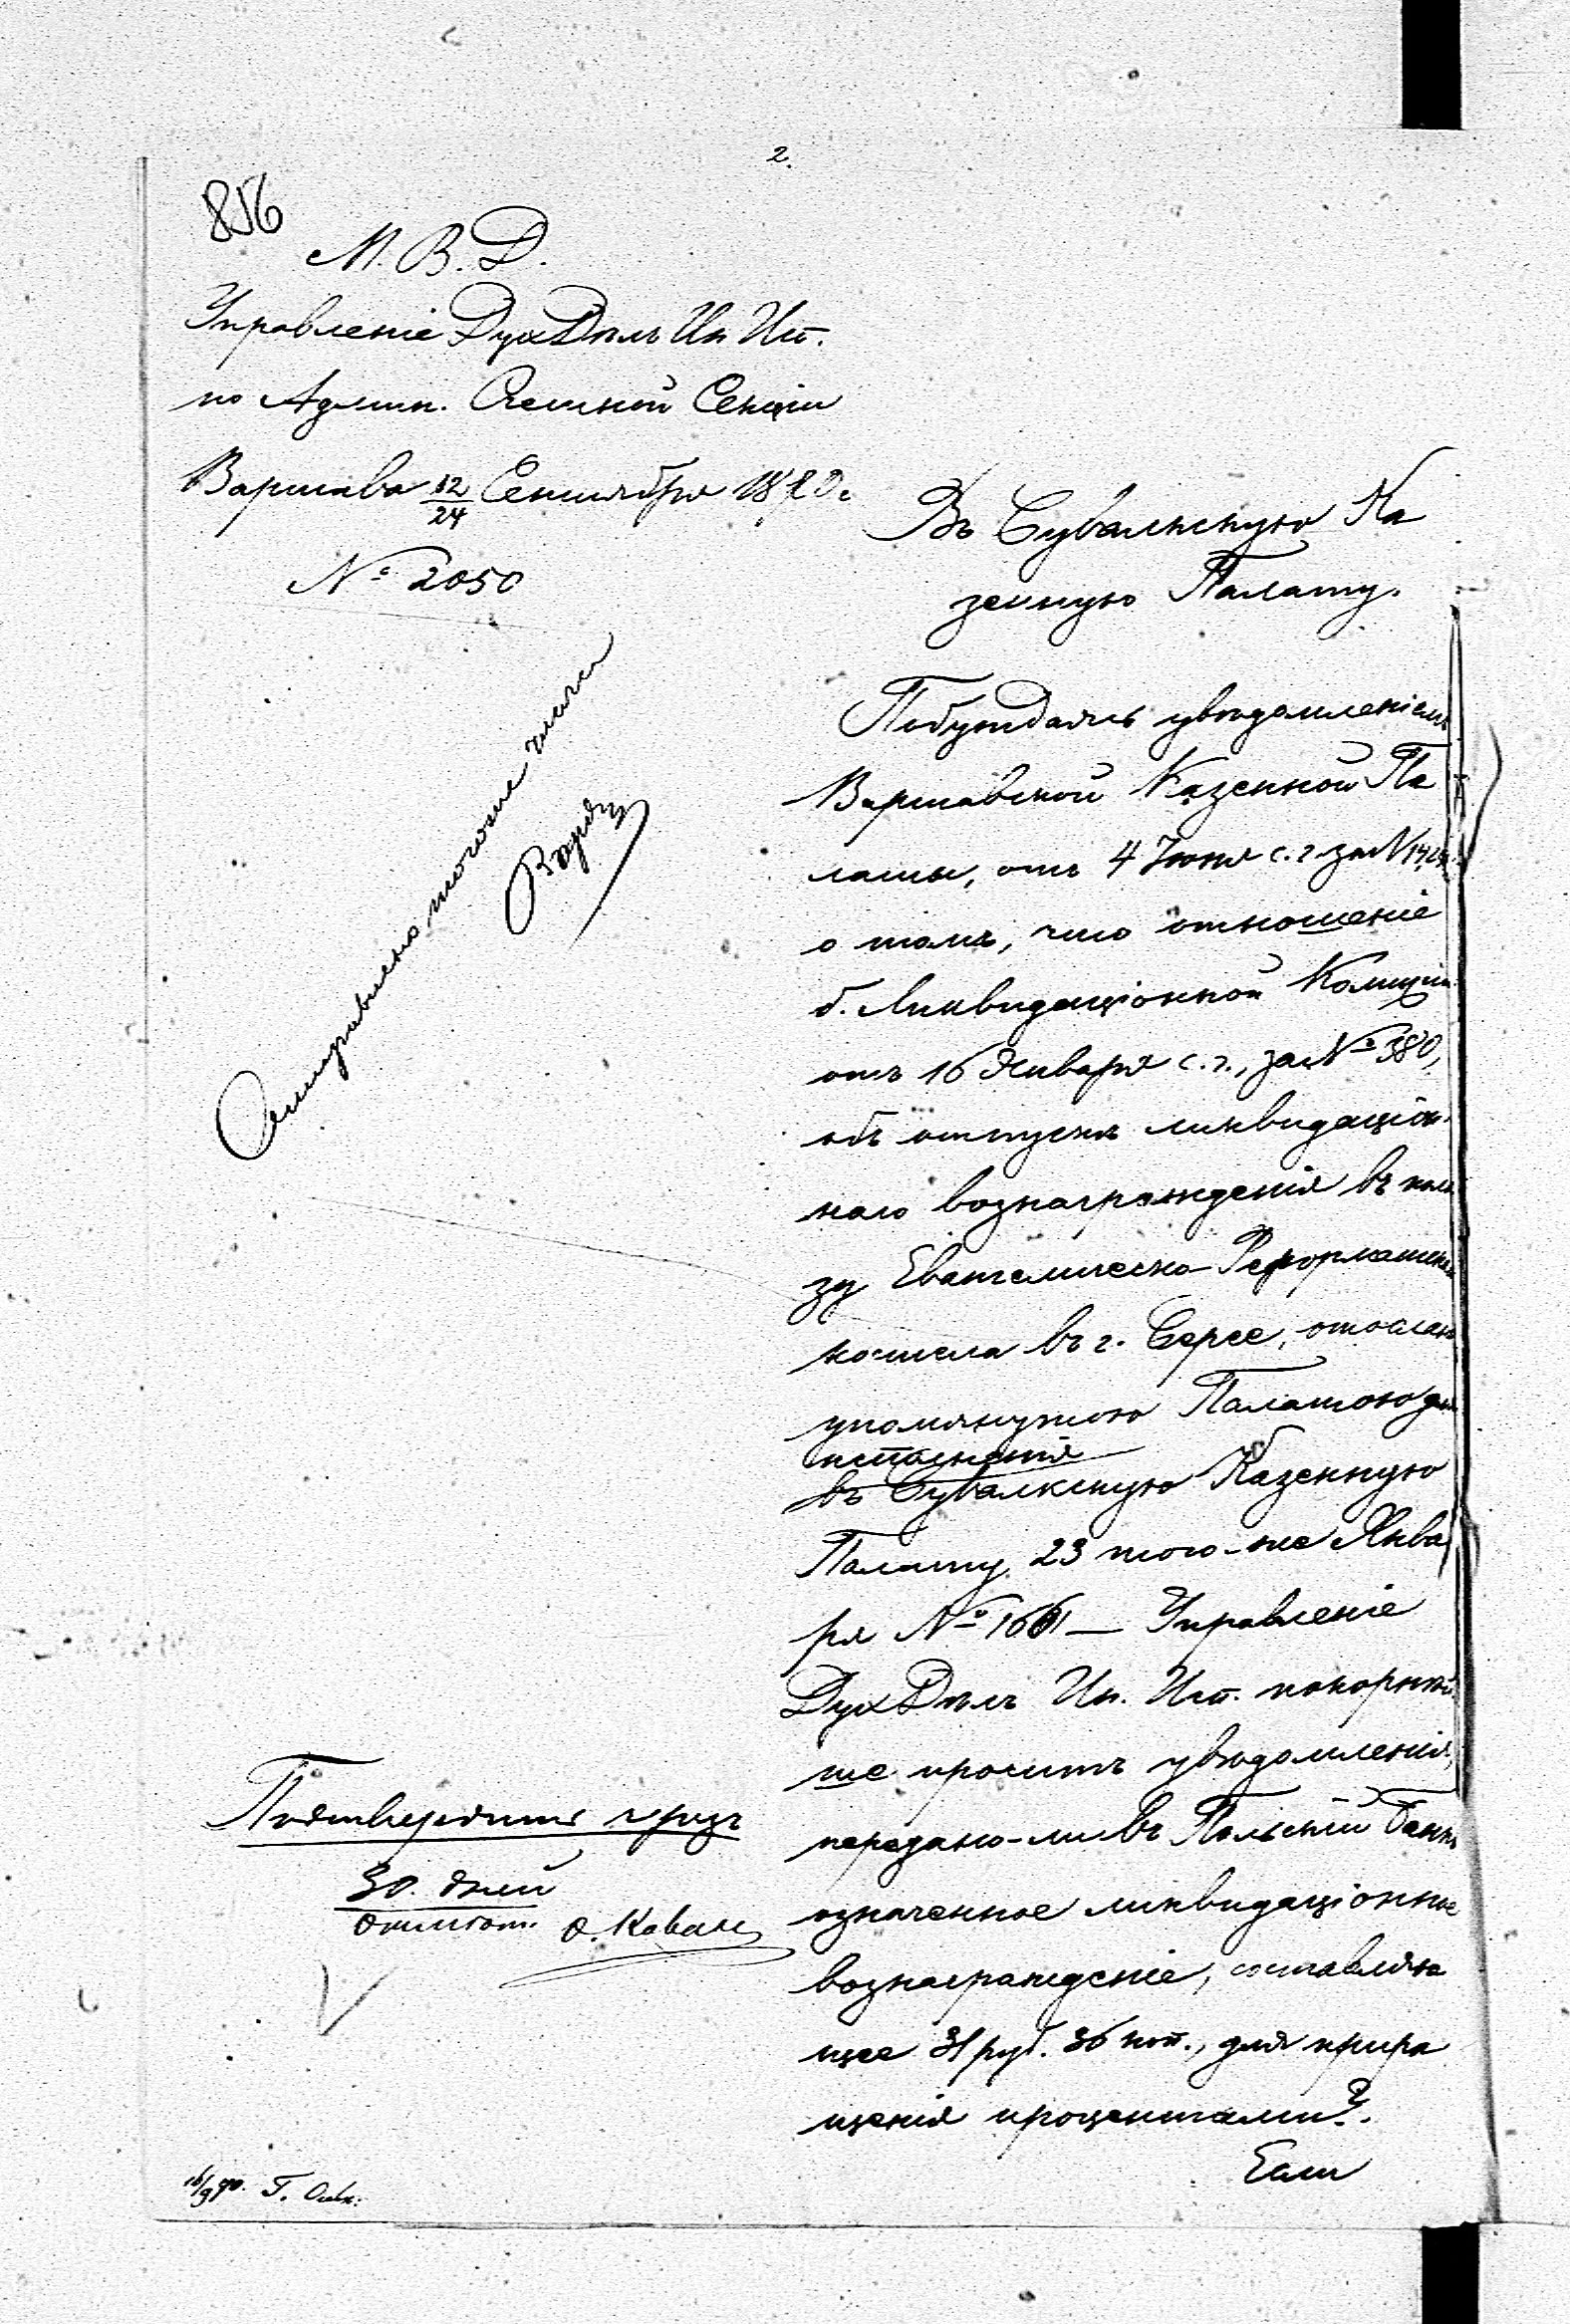 2.
856
М. В. Д.
Управленіе ДухДѣлъ Ин Исп.
по Админ. Счетной Секціи
Варшава 12/24 Сентября 1870 г
№ 2050
Въ Сувалкскую Ка
зенную Палату.
Отправлено того же числа
Побуждаясь увѣдомленіемъ
Варшавской Казенной Па
латы, отъ 4 Іюня с. г за №
о томъ, что отношеніе
б. Ликвидаціонной Комиссіи
отъ 16 Января с. г., за № 380,
объ отпускѣ ликвидаціон
наго вознагражденія въ поль
зу Евангелическо-Реформатскаго
костела въ г. Серее, отослано
упомянутою Палатою для
исполненія
въ Сувалкскую Казенную
Палату 23 того-же Янва
ря № 1661 — Управленіе
ДухДѣлъ Ин. Исп. покорнѣй
ше проситъ увѣдомленія,
передано-ли въ Польскій Банкъ
означенное ликвидаціонное
вознагражденіе, составляю
щее 31 руб. 36 коп., для прира
щенія процентами?.
Если
Подтвердить чрезъ
30. дней